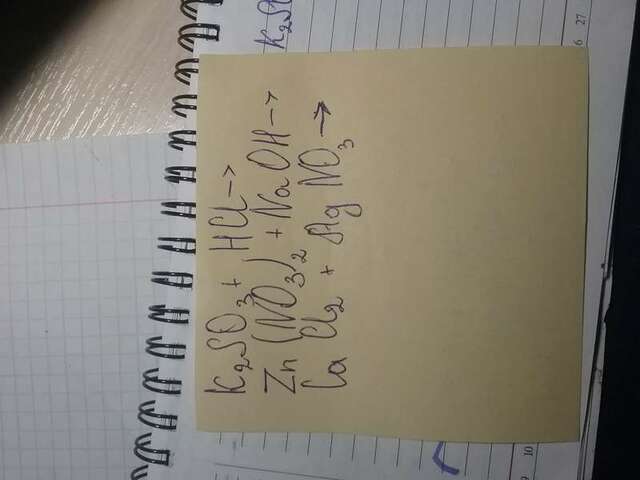 K₂SO₃ + HCl →
Zn(NO₃)₂ + NaOH →
CaCl₂ + AgNO₃ →
6 27
9 10